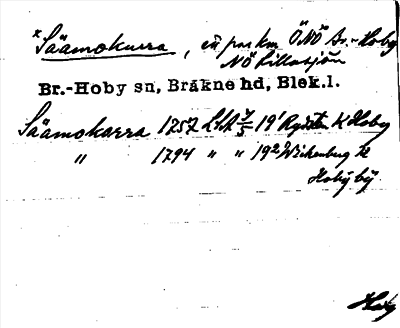 x Säämokarra, en par km ÖNÖ Br.-Hoby
NÖ Lillasjön
Br.-Hoby sn, Bräkne hd, Blek.l.
Säämokarra 1757 LSA 19¹ Rydsten K Hoby
" 1794 " " 19² Wickenberg K
Hoby by.
Hoby